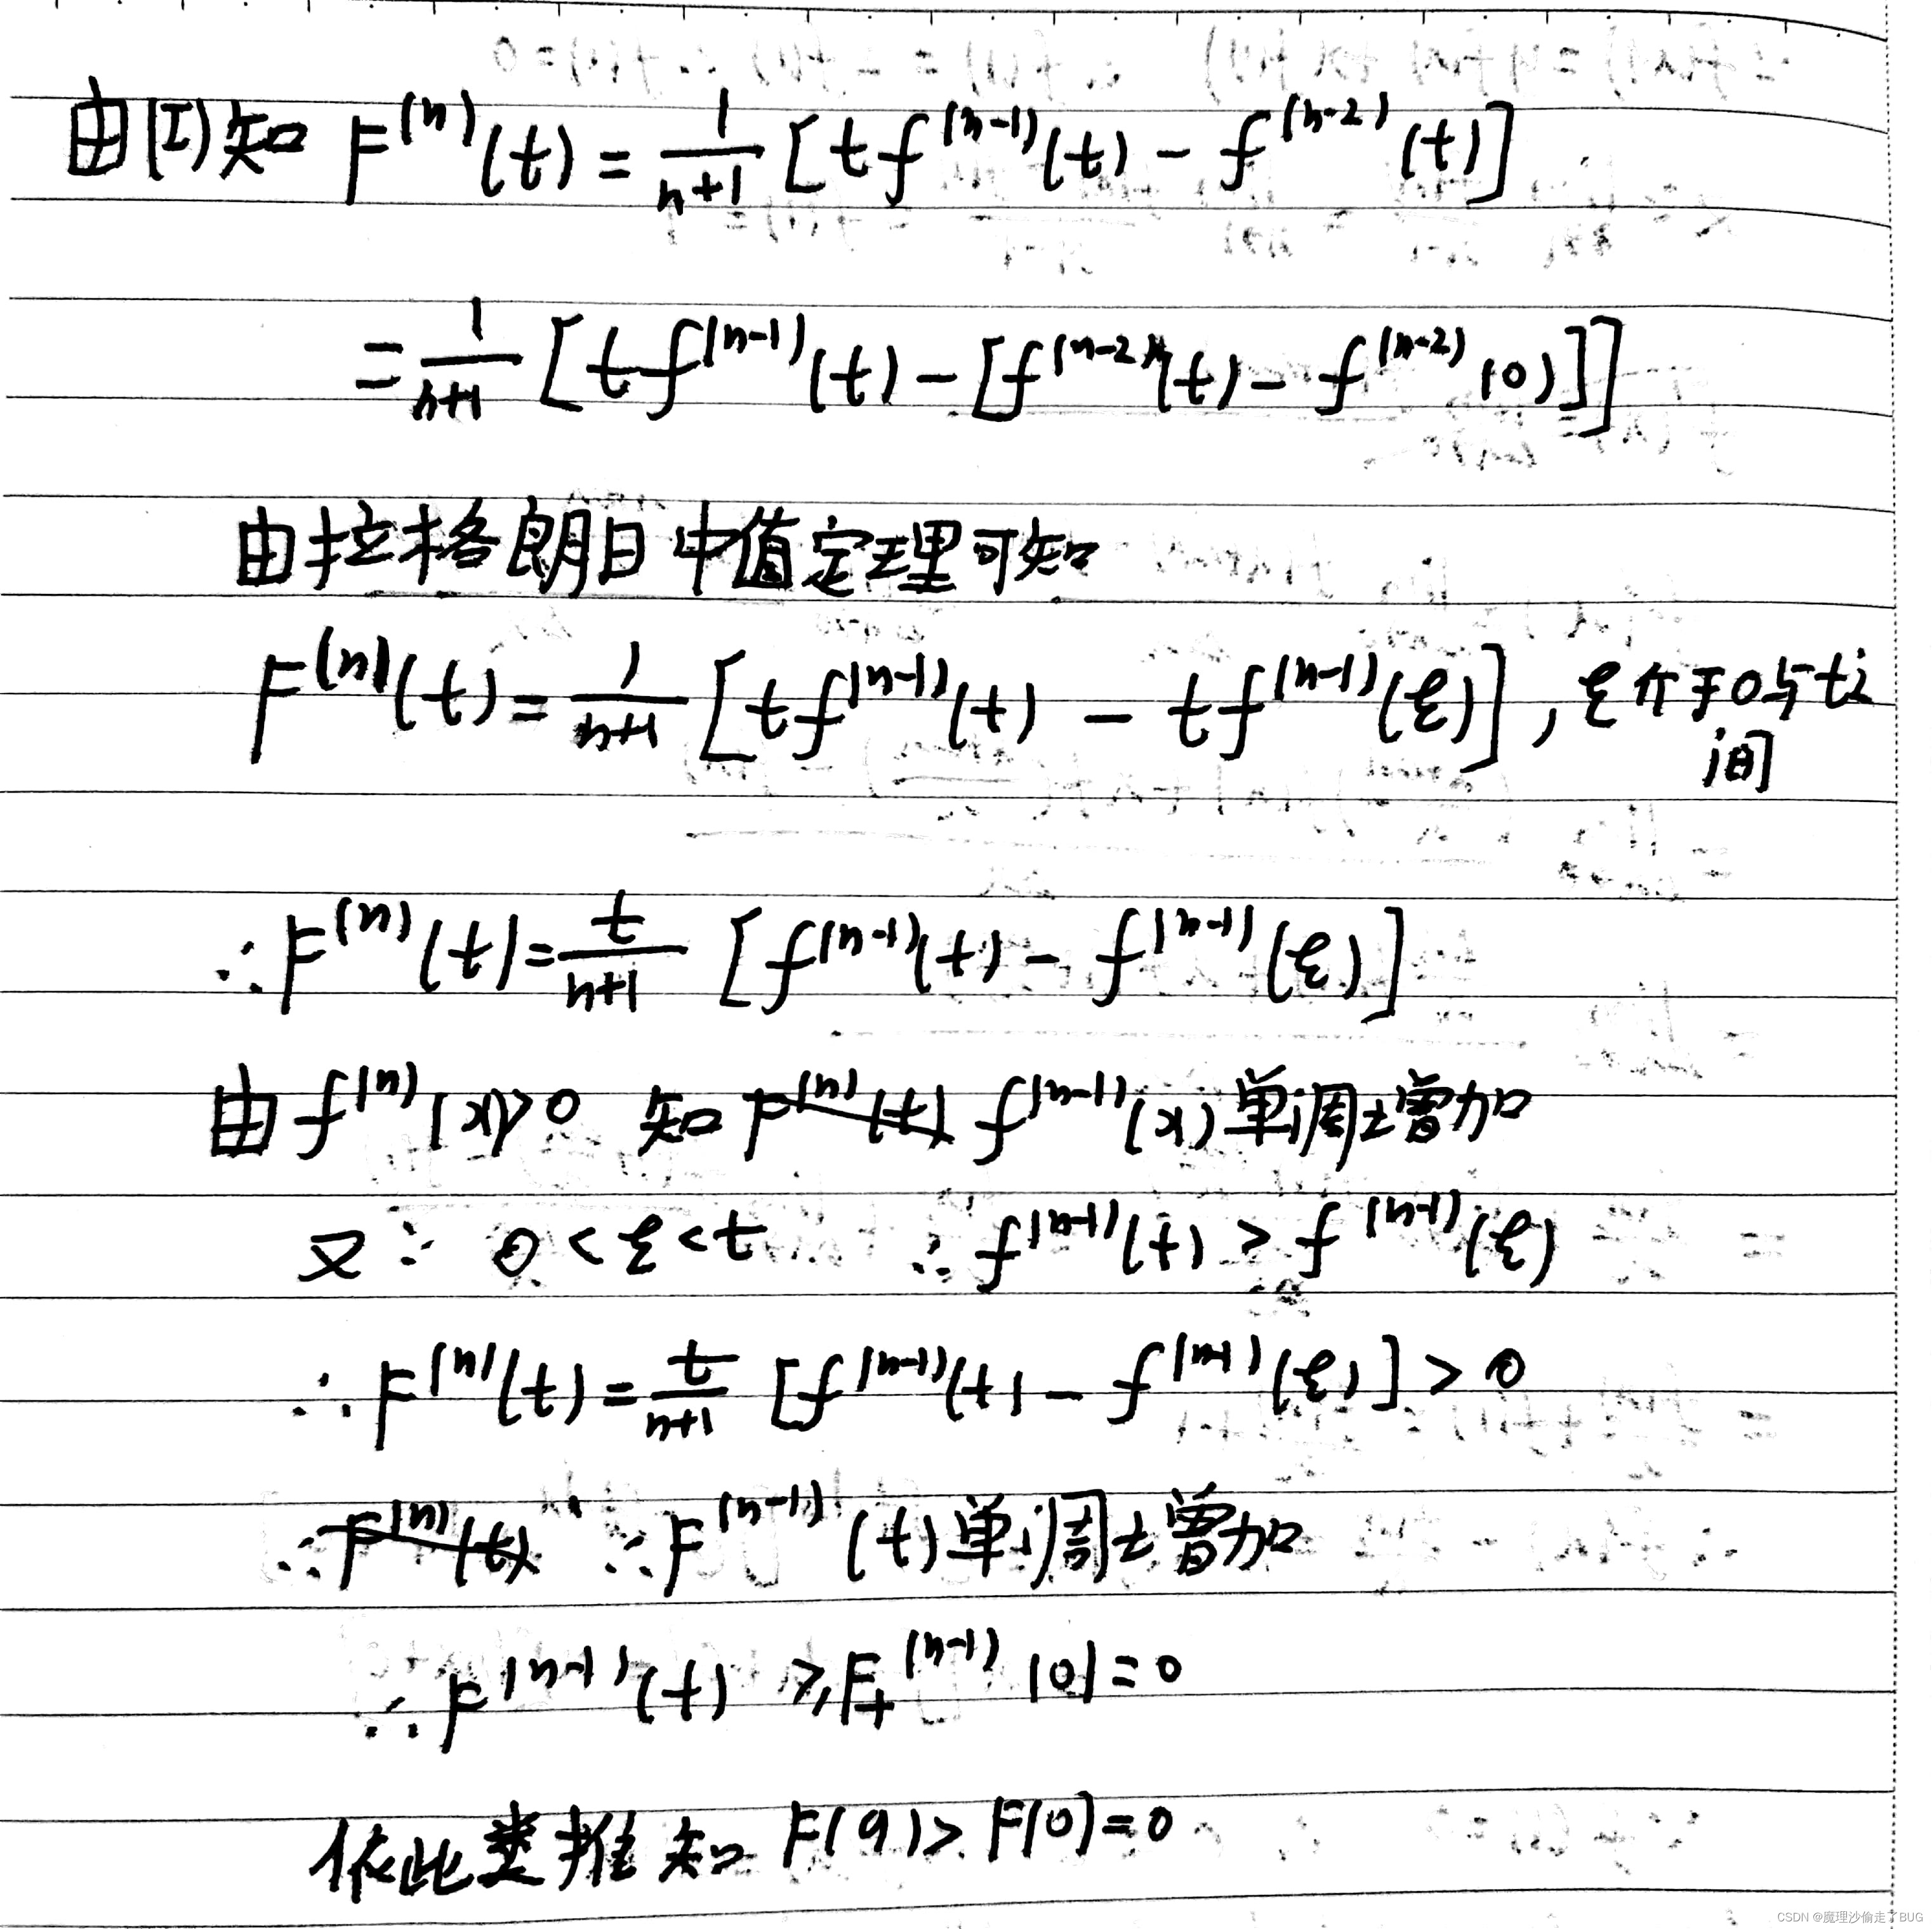 由(I)知 F^(n)(t) = 1/(n+1) [t f^(n-1)(t) - f^(n-2)(t)]
= 1/(n+1) [t f^(n-1)(t) - [f^(n-2)(t) - f^(n-2)(0)]]
由拉格朗日中值定理可知
F^(n)(t) = 1/(n+1) [t f^(n-1)(t) - t f^(n-1)(ξ)], ξ介于0与t之
间
∴ F^(n)(t) = t/(n+1) [f^(n-1)(t) - f^(n-1)(ξ)]
由 f^(n)(x)>0 知 F^(n)(t) f^(n-1)(x) 单调增加
又∵ 0<ξ<t ∴ f^(n-1)(t) > f^(n-1)(ξ)
∴ F^(n)(t) = t/(n+1) [f^(n-1)(t) - f^(n-1)(ξ)] > 0
∴ F^(n)(t) ∴ F^(n-1)(t) 单调增加
∴ F^(n-1)(t) ≥ F₊^(n-1)(0) = 0
依此类推知 F(a) > F(0) = 0
CSDN @魔理沙偷走了BUG